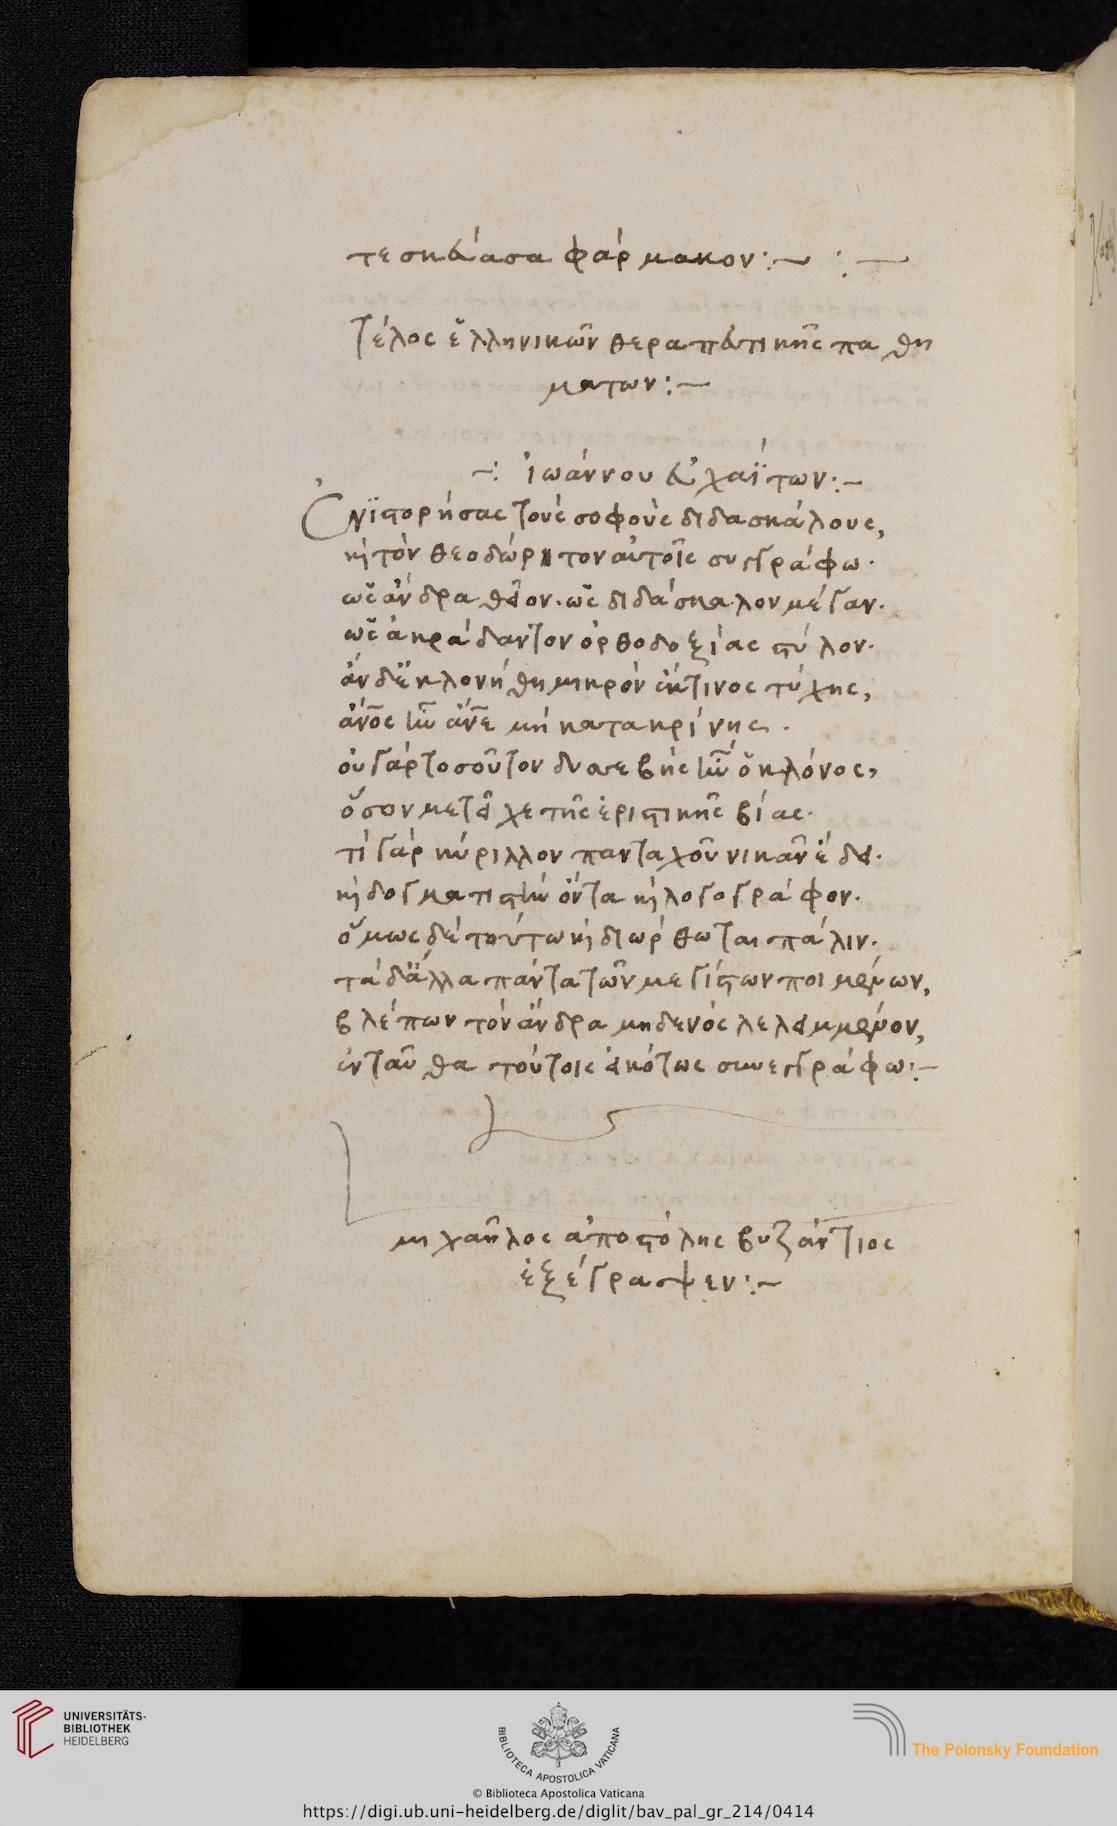 τεσκεύασα φάρμακον:~ :—
Τέλος ἑλληνικῶν θεραπευτικῆς παθη
μάτων:—
–: ἰωάννου εὐχαΐτων:–
Ἐνϊστορήσας τοὺς σοφοὺς διδασκάλους,
κὶ τὸν θεοδώρητον αὐτοῖς συγγράφω·
ὡς ἄνδρα θεῖον· ὡς διδάσκαλον μέγαν·
ὡς ἀκράδαντον ὀρθοδοξίας στύλον·
ἂν δὲ κλονήθη μικρὸν ἔκ τινος τύχης,
ἄνος ἦν ἄνε μὴ κατακρίνης·
οὐ γὰρ τοσοῦτον δυσσεβὴς ἦν ὁ κλόνος,
ὅσον μετεῖχε τῆς ἐριστικῆς βίας·
τί γὰρ κύριλλον πανταχοῦ νικᾶν ἔδει·
κὶ δογματιστὴν ὄντα κὶ λογογράφον·
ὅμως δὲ τούτω κὶ διώρθωται πάλιν·
τὰ δ' ἄλλα πάντα τῶν μεγίστων ποιμένων,
βλέπων τὸν ἄνδρα μηδενὸς λελειμμένον,
ἐνταῦθα τούτοις εἰκότως συνεγγράφω:–
μιχαῆλος ἀποστόλης βυζάντιος
ἐξέγραψεν:~
UNIVERSITÄTS-
BIBLIOTHEK
HEIDELBERG
BIBLIOTECA APOSTOLICA VATICANA
The Polonsky Foundation
© Biblioteca Apostolica Vaticana
https://digi.ub.uni-heidelberg.de/diglit/bav_pal_gr_214/0414